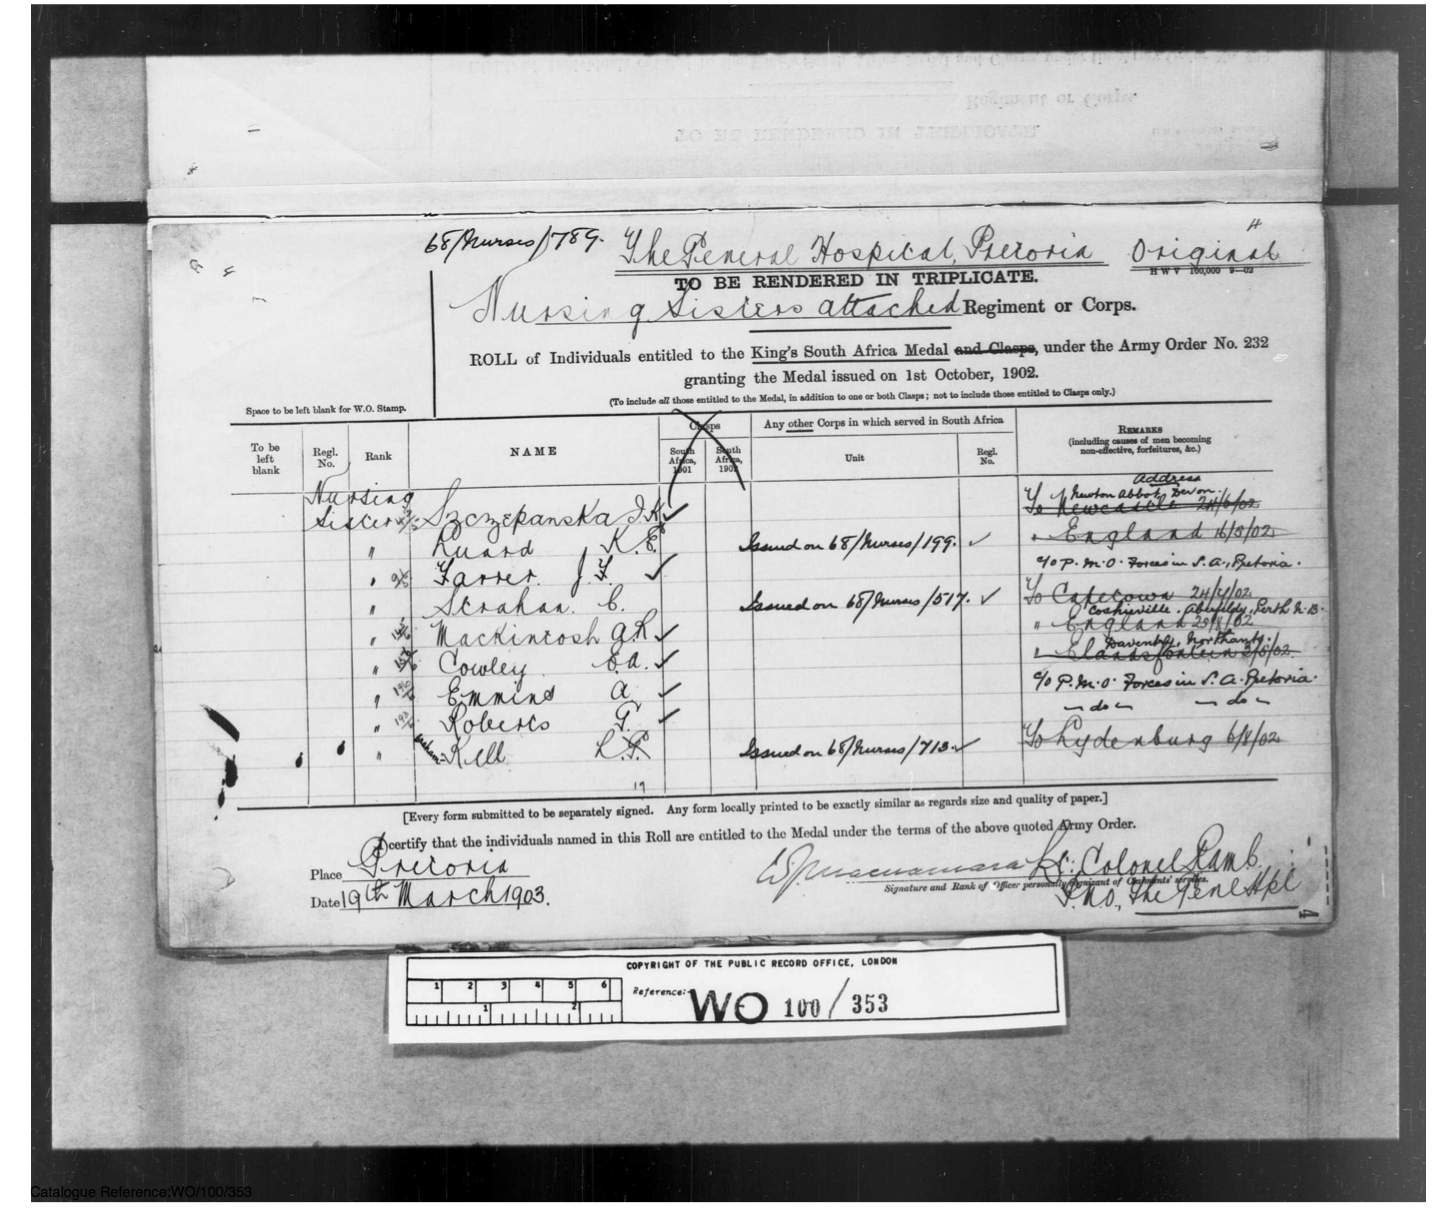 4
68/Nurses/789.
The General Hospital, Pretoria Original
TO BE RENDERED IN TRIPLICATE.
H W V 100,000 9—02
Nursing Sisters attached Regiment or Corps.
ROLL of Individuals entitled to the King's South Africa Medal and Clasps, under the Army Order No. 232
granting the Medal issued on 1st October, 1902.
(To include all those entitled to the Medal, in addition to one or both Clasps; not to include those entitled to Clasps only.)
Space to be left blank for W.O. Stamp.
To be left blank
Regl. No.
Rank
NAME
Clasps
South Africa, 1901
South Africa, 1902
Any other Corps in which served in South Africa
Unit
Regl. No.
REMARKS
(including causes of men becoming non-effective, forfeitures, &c.)
Address
Nursing
Sister Szczepanska J.K. ✓ To Newton Abbot, Devon.
To Newcastle 24/6/02
" Luard K.E. Issued on 68/Nurses/199. ✓ " England 16/5/02
" Farrer. J.F. ✓ c/o P.M.O. Forces in S.A., Pretoria.
" Strahan. C. Issued on 68/Nurses/517. ✓ To Capetown 24/4/02
Coshieville, Aberfeldy, Perth N.B.
" Mackintosh A.R. ✓ " England 25/8/02
Daventry, Northants.
" Cowley E.A. ✓ " Elandsfontein 3/6/02
" Emmins A. ✓ c/o P.M.O. Forces in S.A. Pretoria.
" Roberts G. ✓ — do — — do —
" Kell L.P. Issued on 68/Nurses/713. ✓ To Lydenburg 6/8/02
[Every form submitted to be separately signed. Any form locally printed to be exactly similar as regards size and quality of paper.]
I certify that the individuals named in this Roll are entitled to the Medal under the terms of the above quoted Army Order.
Place Pretoria
Date 19th March 1903.
Macnamara Lt: Colonel Ramb.
Signature and Rank of Officer personally cognizant of Claimants' services.
P.M.O., The Genl Hpl
COPYRIGHT OF THE PUBLIC RECORD OFFICE, LONDON
1 2 3 4 5 6
1 2
Reference:-
WO 100/353
Catalogue Reference:WO/100/353